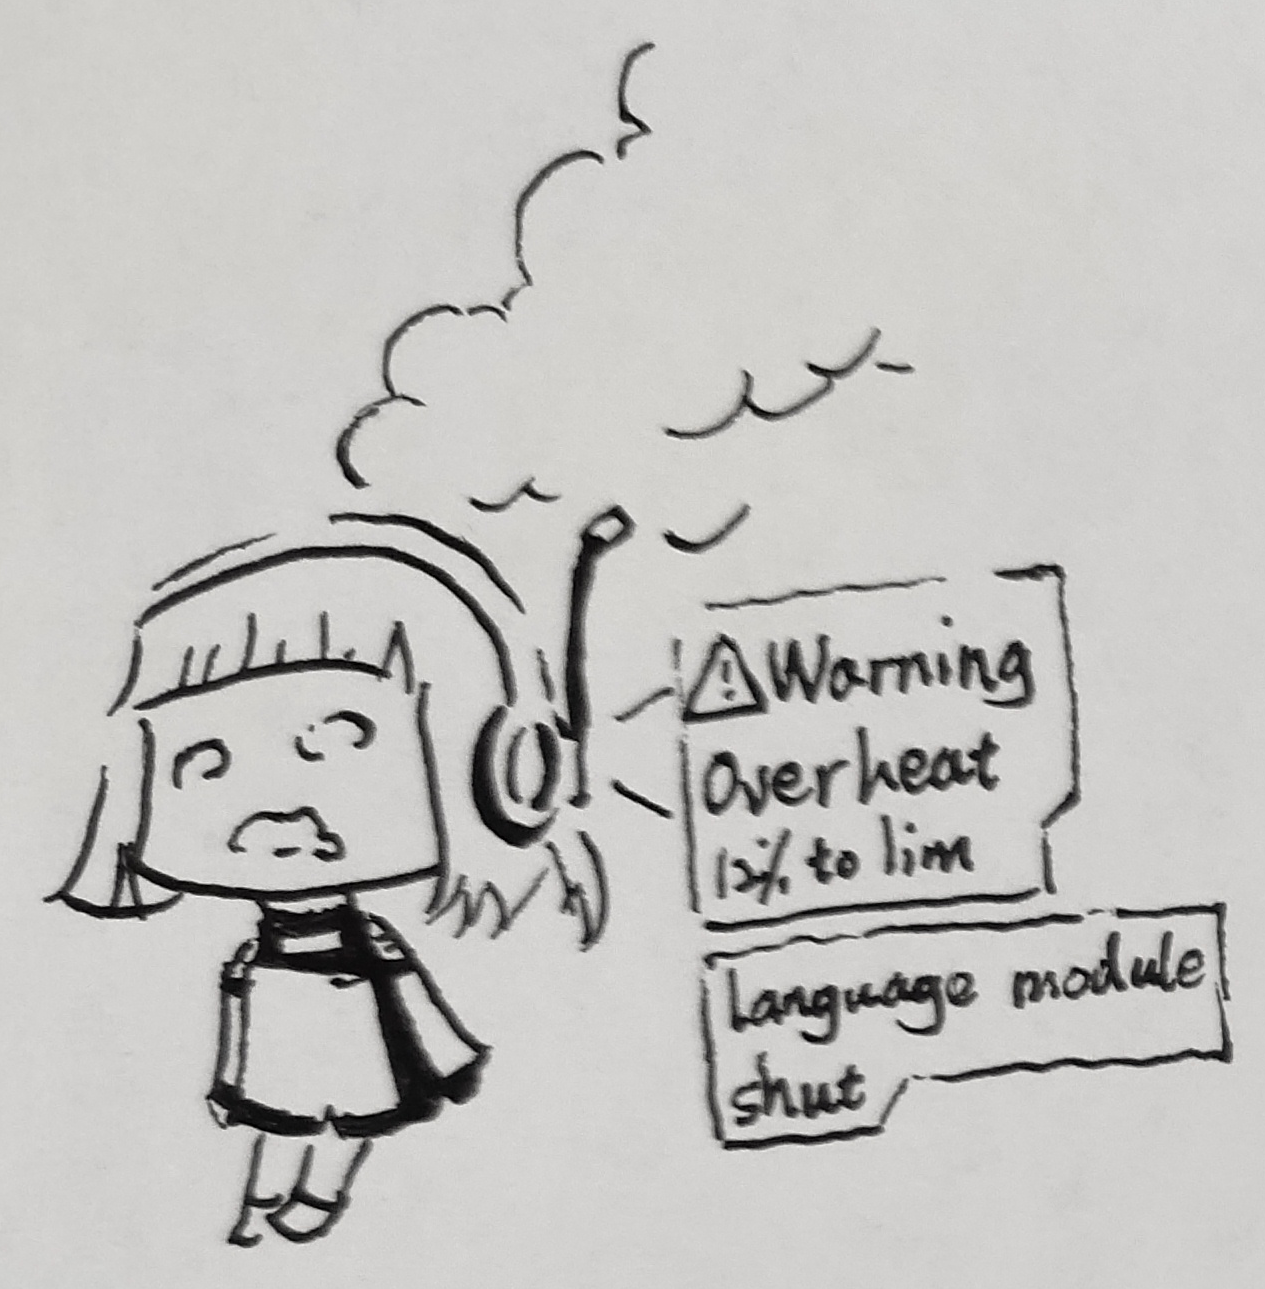 ⚠Warning
Overheat
12% to lim
Language module
shut